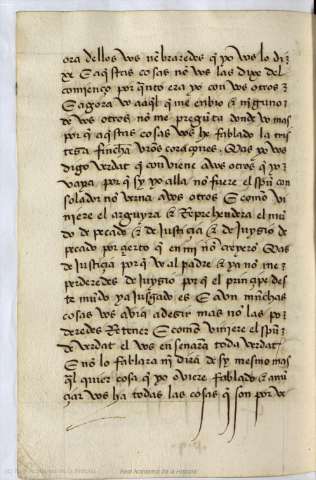 ora dellos vos nẽbraredes q̃ yo vos lo di
xe E aq̃stas cosas nõ vos las dixe del
comienço por q̃nto era yo con vos otros E
E agora vo aaq̃l q̃ me enbio & njnguno
de vos otros nõ me pregũta donde vo mas
por q̃ aq̃stas cosas vos he fablado la tris
teza fincha vr̃os coraçones. Mas yo vos
digo verdat q̃ conviene avos otros q̃ yo
vaya por q̃ sy yo alla nõ fuere el spũ con
solador nõ verna avos otros E como vi
niere el arguyra & Reprehendera el mũ
do de pecado & de justiçia & de juyzio de
pecado por çierto q̃ en mj nõ creyerõ Mas
de justiçia por q̃ vo al padre & ya nõ me
veredes de juyzio por q̃ el prinçipe des
te mũdo ya juzgado es E avn muchas
cosas vos avia adezir mas nõ las po
deredes Retener E como vinjere el spũ
de verdat el vos enseñara toda verdat
E nõ lo fablara nj dira de sy mesmo mas
q̃l quier cosa q̃ yo oviere fablado & anũ
çiar vos ha todas las cosas q̃ son por ve
Real Academia de la Historia